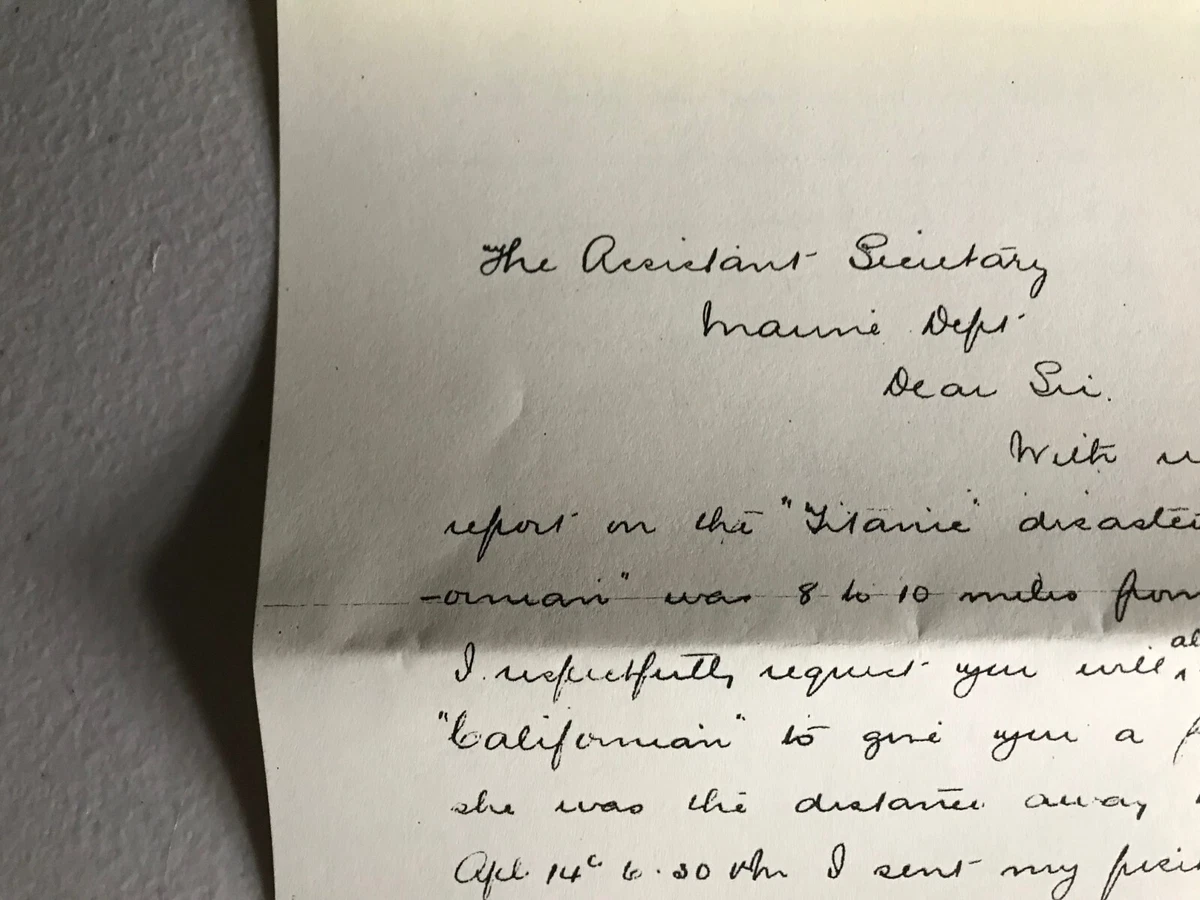 The Assistant Secretary
Marine Dept
Dear Sir.
With
report on the "Titanic" disaster
-ornian" was 8 to 10 miles from
al
I respectfully request you will
"Californian" to give you a
she was the distance away
Apl. 14th 6.30 PM I sent my